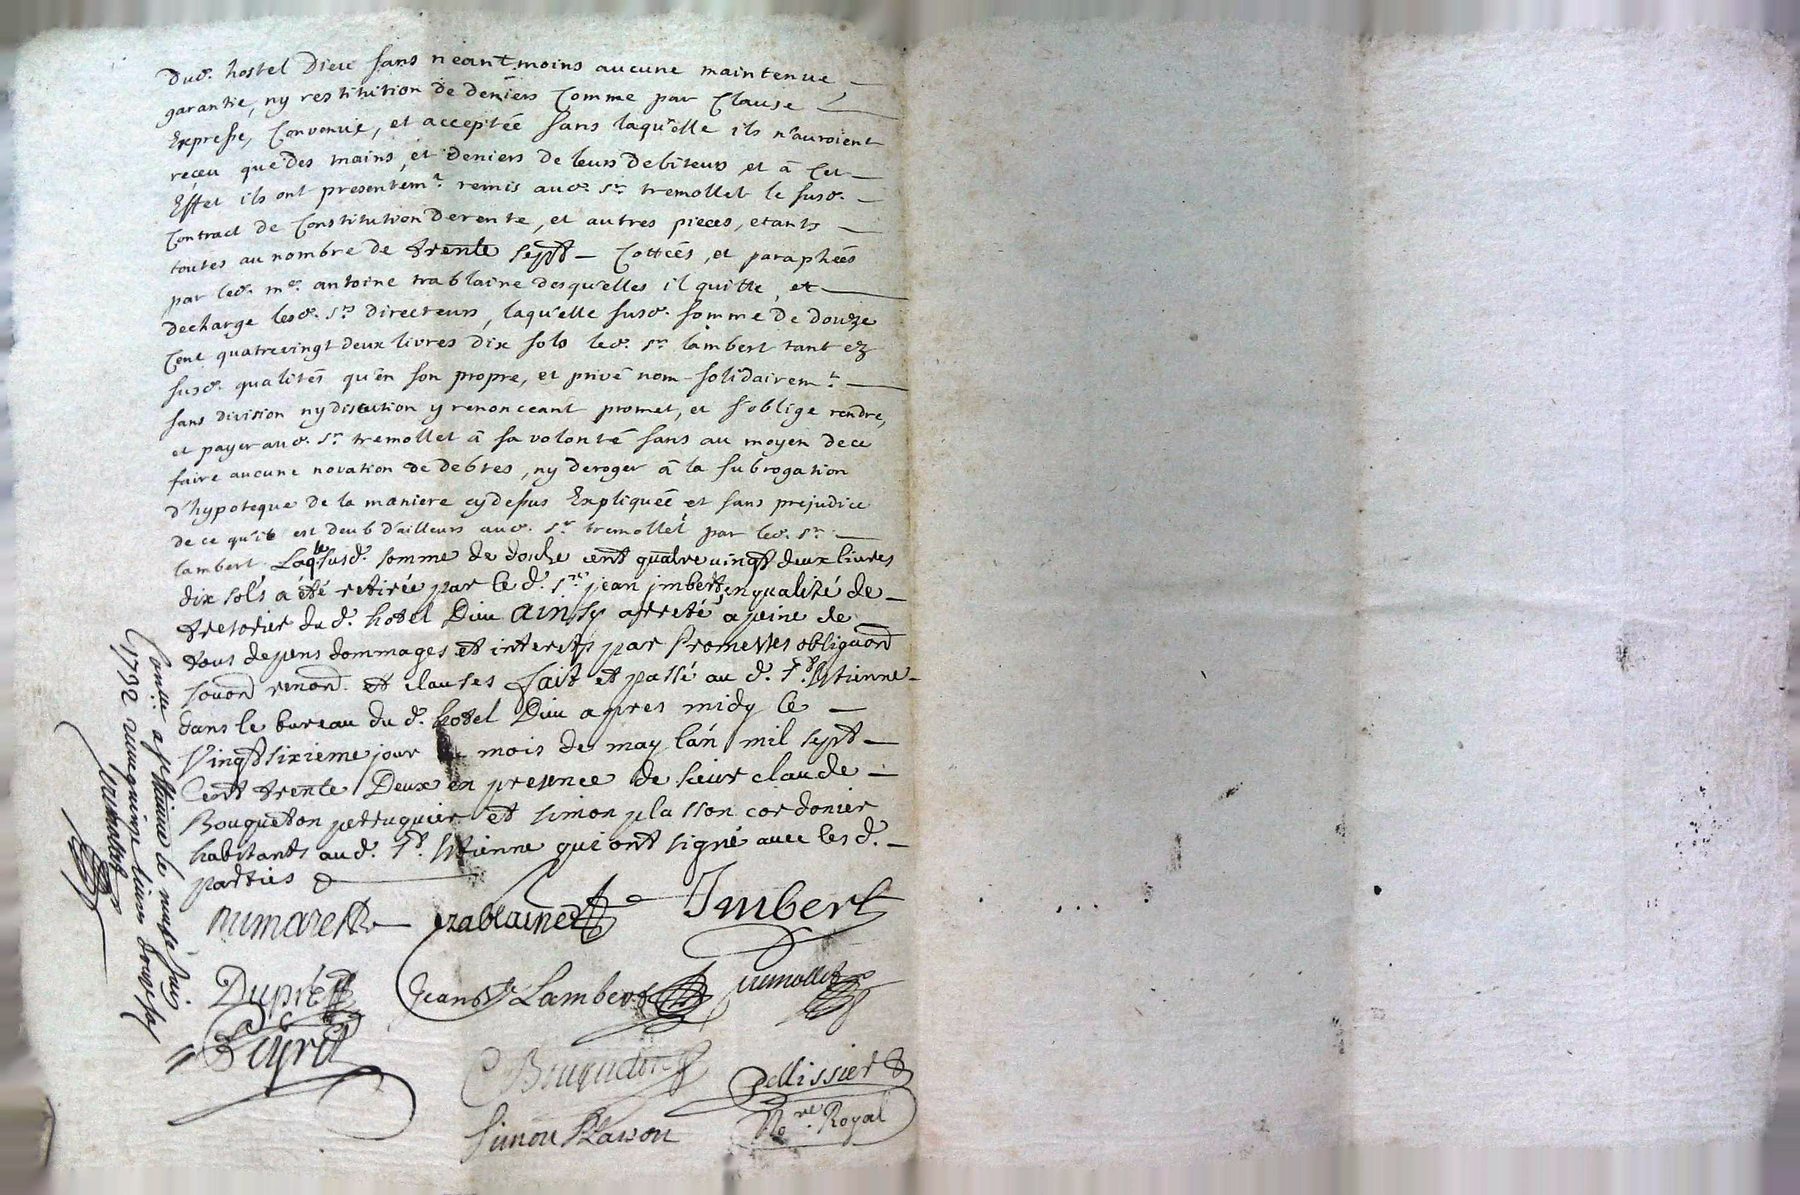 dud. hostel Dieu sans neantmoins aucune maintenue
garantie, ny restitution de deniers Comme par Clause
Expresse, Convenüe, et acceptée sans laquelle ils n'auroient
reçeu que des mains, et deniers de leurs debiteurs et à Cet
Effet ils ont presentem.t remis aud. s.r tremollet le susd.
Contract de Constitution de rente, et autres pieces, etants
toutes au nombre de trente sept Cottées, et paraphées
par led. m.e antoine trablaine desquelles il quitte, et
decharge lesd. s.rs directeurs, laquelle susd. somme de douze
Cent quatrevingt deux livres dix sols led. s.r lambert tant ez
susd. qualités qu'en son propre, et privé nom solidairem.t
sans division ny discution y renonceant promet, et s'oblige rendre,
et payer aud. s.r tremollet à sa volonté sans au moyen de ce
faire aucune novation de debtes, ny deroger à la subrogation
d'hypoteque de la maniere cy dessus Expliquée et sans prejudice
de ce qu'il est deub d'ailleurs aud. s.r tremollet par led. s.r
lambert Laq.le susd. somme de douze cent quatre vingt deux livres
dix sols a été retirée par le d. s.r jean jmbert, en qualité de
tresorier du d. hotel Dieu Ainsy arreté a peine de
tous depens dommages et interets par Promesses obligaond
renond. et clauses fait et passé au d. s.t Etienne
dans le bureau du d. hotel Dieu apres midy le
Vingt sixieme jour mois de may l'an mil sept
Cent trente Deux en presence de sieur claude
Bouqueton perruquier et simon plasson cordonier
habitants aud. s.t Etienne qui ont signé avec lesd.
parties
trablaine Imbert
Dupré Jean Lambert tremollet
Peyret
C Bouqueton Pellissier
Simon Plasson No.re Royal
Conllé a s.t Etienne le
1732